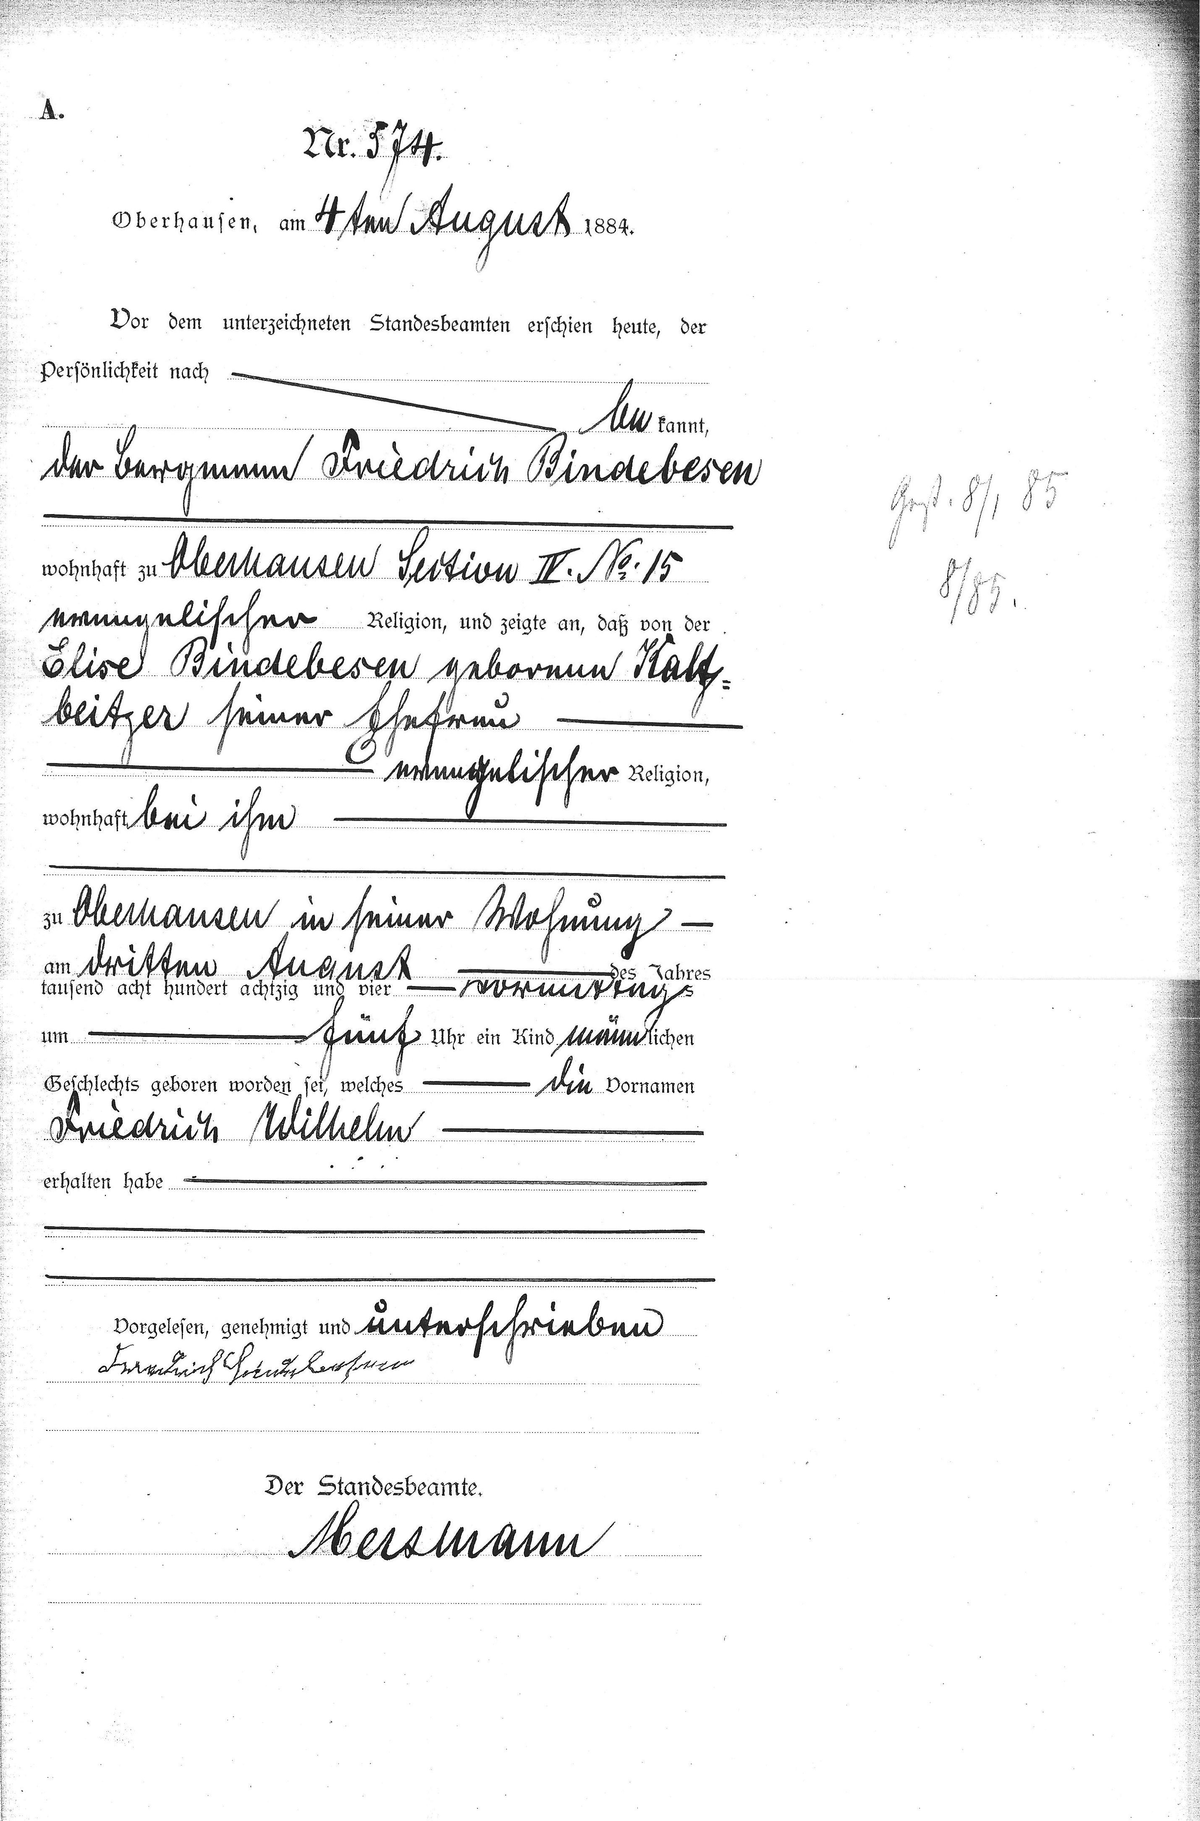 A.
Nr. 574.
Oberhausen, am 4ten August 1884.
Vor dem unterzeichneten Standesbeamten erschien heute, der
Persönlichkeit nach
be kannt,
der Bergmann Friedrich Bindebesen
wohnhaft zu Oberhausen Section IV. No. 15
evangelischer Religion, und zeigte an, daß von der
Elise Bindebesen geborenen Kalt=
beitzer seiner Ehefrau
evangelischer Religion,
wohnhaft bei ihm
zu Oberhausen in seiner Wohnung
am dritten August des Jahres
tausend acht hundert achtzig und vier vormittags
um fünf Uhr ein Kind männlichen
Geschlechts geboren worden sei, welches die Vornamen
Friedrich Wilhelm
erhalten habe
Vorgelesen, genehmigt und unterschrieben
Friedrich Bindebesen
Der Standesbeamte.
Mersmann
Gest. 8/1 85
8/85.